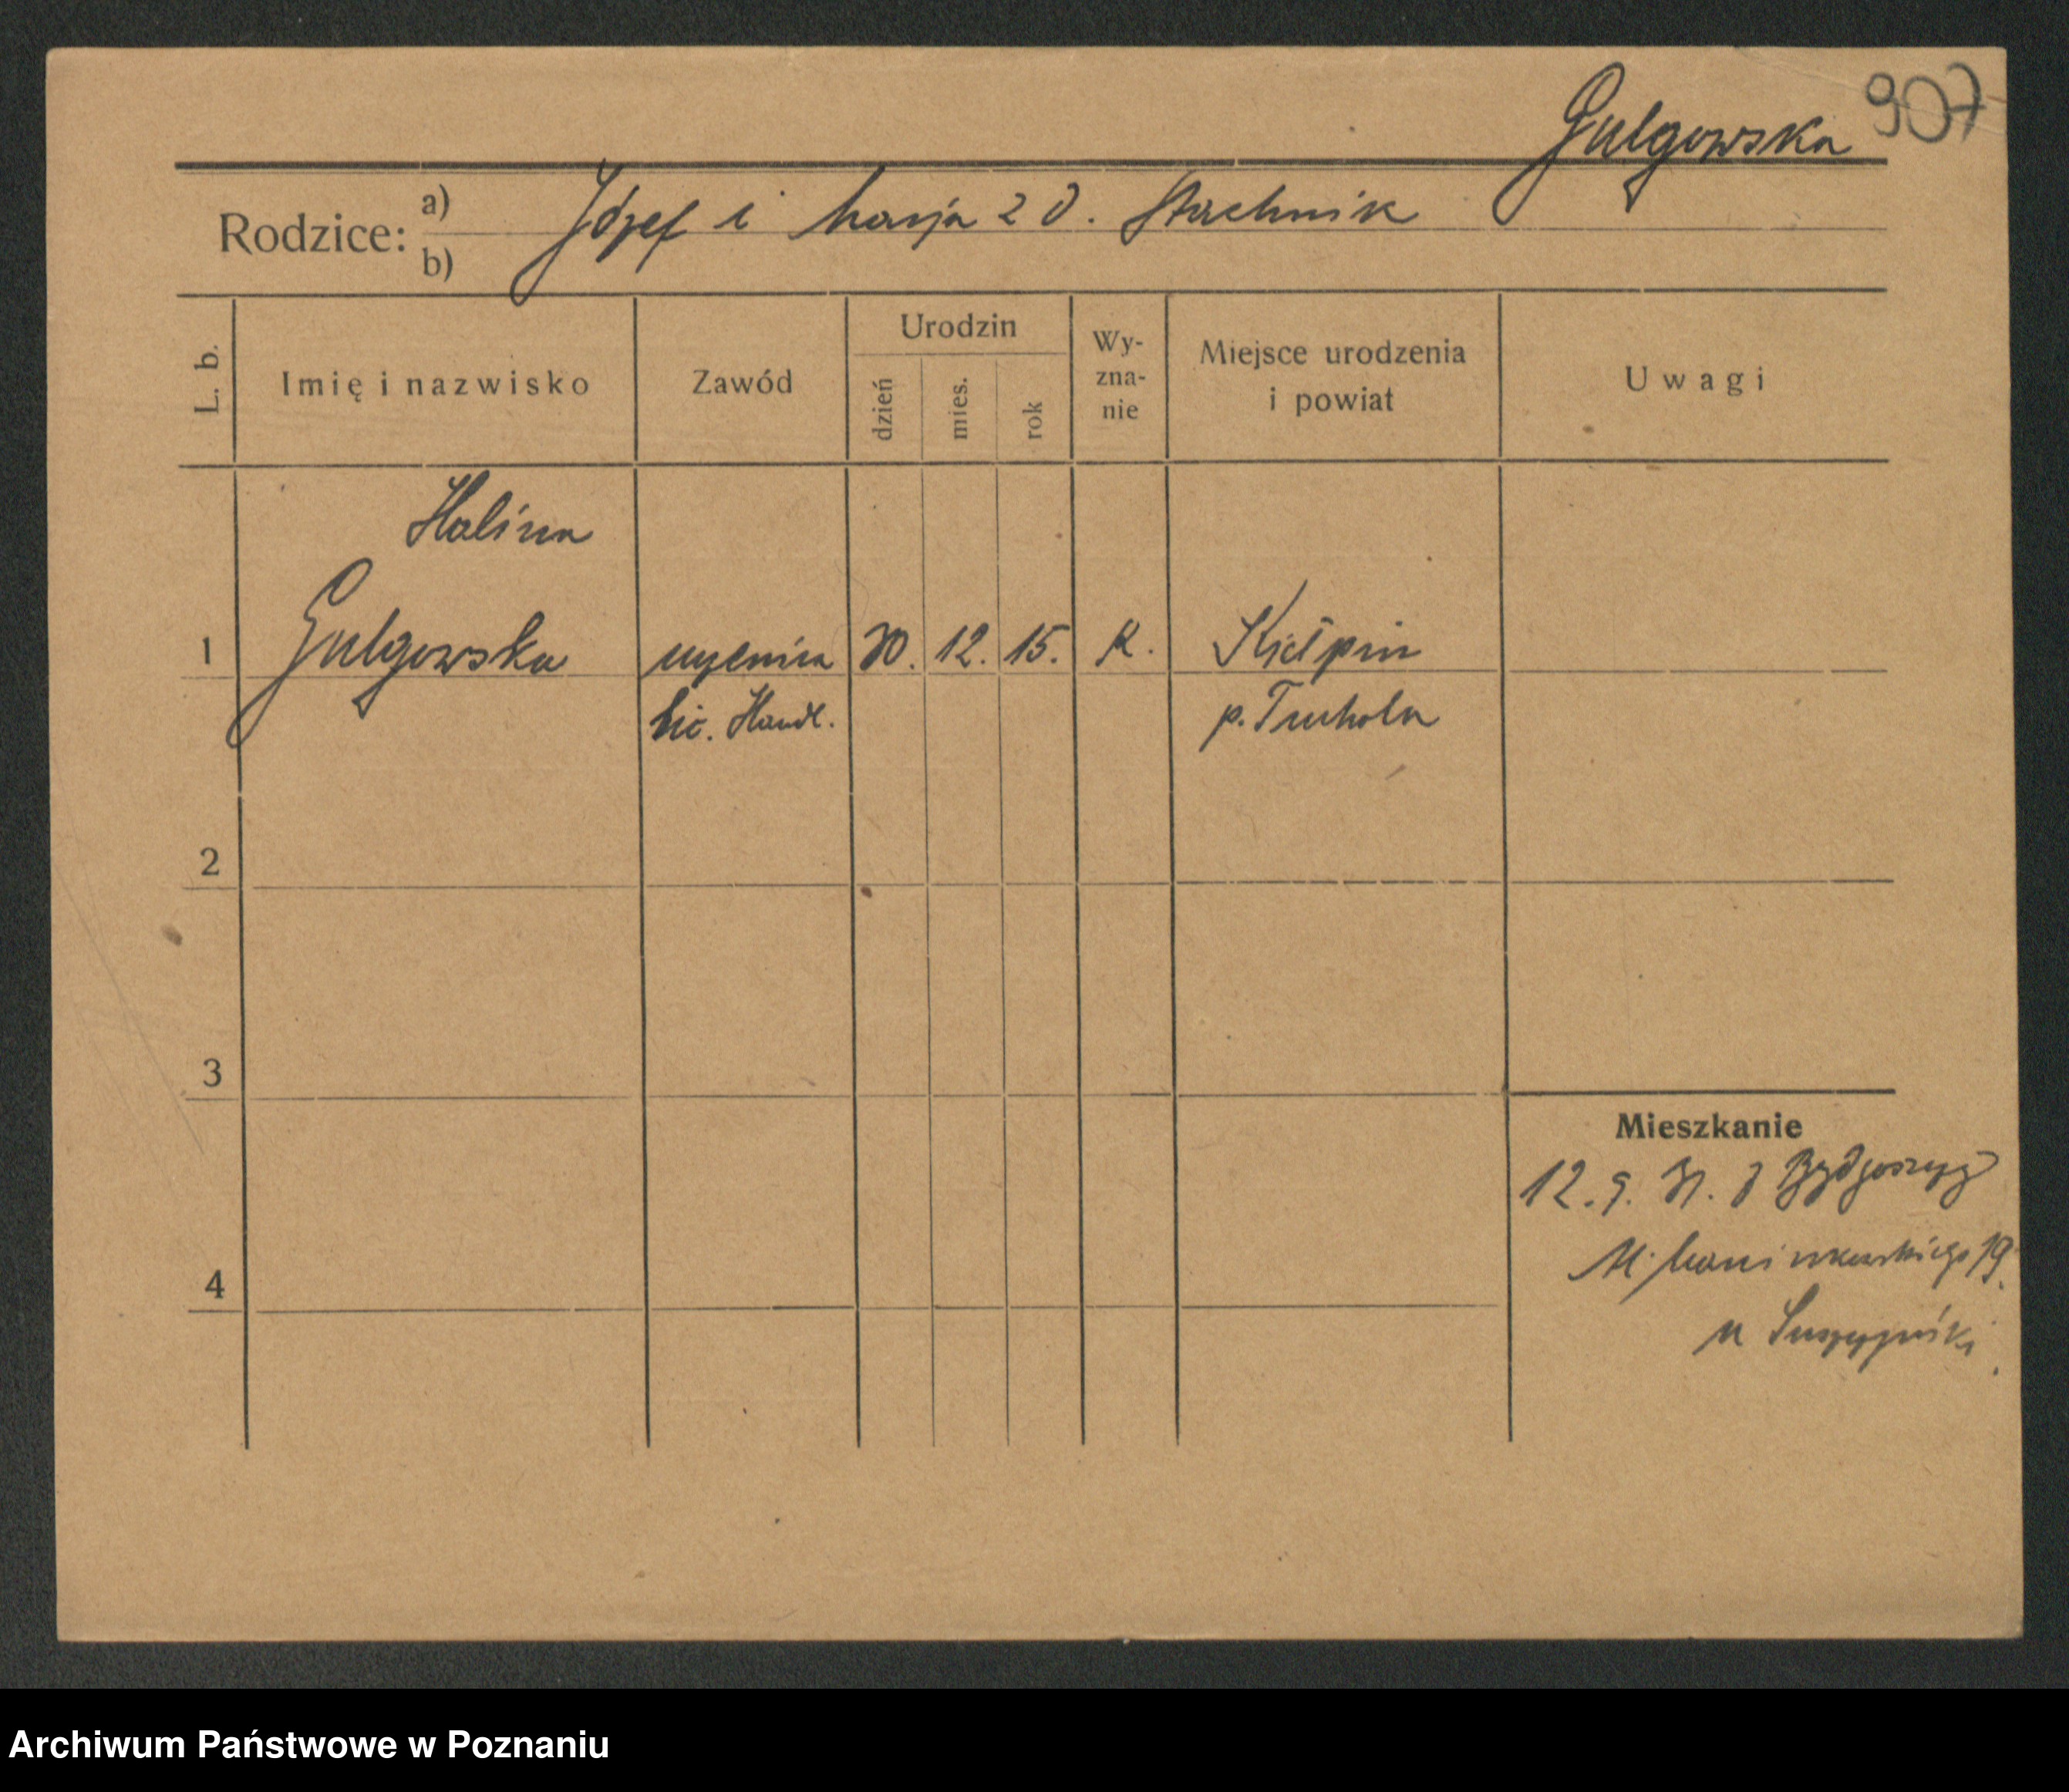 Gulgowska 907
Rodzice: a) Józef i Marja z d. Stachnik
b)
L. b. Imię i nazwisko Zawód Urodzin dzień mies. rok Wy-zna-nie Miejsce urodzenia i powiat Uwagi
Halina
1 Gulgowska uczenica 30. 12. 15. k. Kiełpin
Lic. Handl. p. Tuchola
2
3
Mieszkanie
12. 9. 31. z Bydgoszczy
M. 19.
4
u
Archiwum Państwowe w Poznaniu